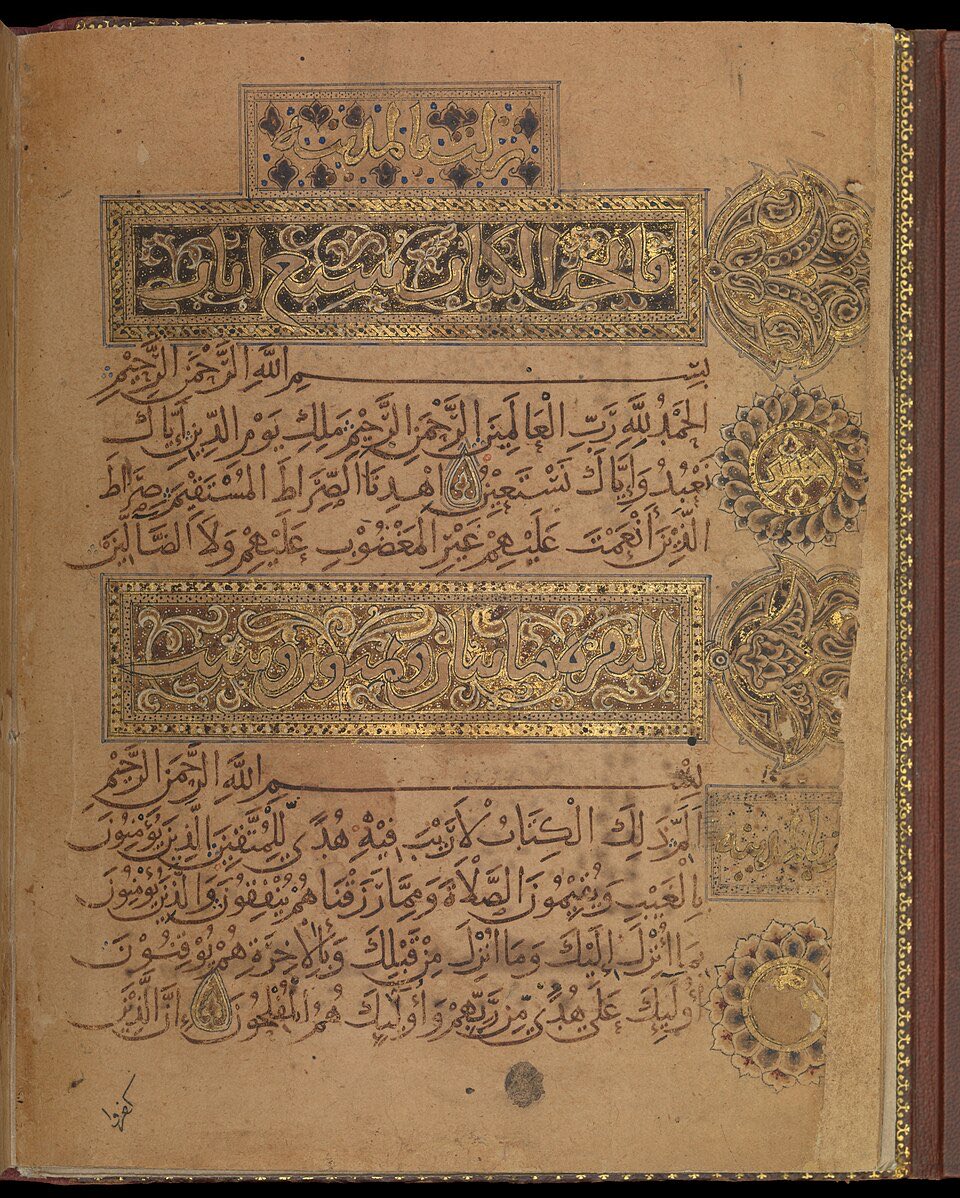 نزلت بالمدينة
فاتحة الكتاب سبع ايات
بِسْمِ اللَّهِ الرَّحْمَنِ الرَّحِيْمِ
الحَمْدُ لِلَّهِ رَبِّ العَالَمِيْنَ الرَّحْمَنِ الرَّحِيْمِ مَلِكِ يَوْمِ الدِّيْنِ إِيَّاكَ
نَعْبُدُ وَإِيَّاكَ نَسْتَعِيْنُ اهْدِنَا الصِّرَاطَ المُسْتَقِيْمَ صِرَاطَ
الَّذِيْنَ أَنْعَمْتَ عَلَيْهِمْ غَيْرِ المَغْضُوْبِ عَلَيْهِمْ وَلَا الضَّالِّيْنَ
البقره مايتان وثمنون وست
بِسْمِ اللَّهِ الرَّحْمَنِ الرَّحِيْمِ
الم ذَلِكَ الْكِتَابُ لَا رَيْبَ فِيْهِ هُدًى لِلْمُتَّقِيْنَ الَّذِيْنَ يُؤْمِنُوْنَ
بِالْغَيْبِ وَيُقِيْمُوْنَ الصَّلَاةَ وَمِمَّا رَزَقْنَاهُمْ يُنْفِقُوْنَ وَالَّذِيْنَ يُؤْمِنُوْنَ
بِمَا أُنْزِلَ إِلَيْكَ وَمَا أُنْزِلَ مِنْ قَبْلِكَ وَبِالْآخِرَةِ هُمْ يُوْقِنُوْنَ
أُوْلَئِكَ عَلَى هُدًى مِّنْ رَبِّهِمْ وَأُوْلَئِكَ هُمُ الْمُفْلِحُوْنَ إِنَّ الَّذِيْنَ
كفروا